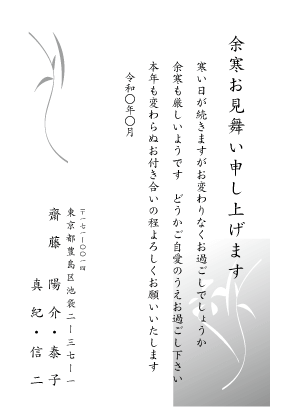 余寒お見舞い申し上げます
寒い日が続きますがお変わりなくお過ごしでしょうか
余寒も厳しいようです　どうかご自愛のうえお過ごし下さい
本年も変わらぬお付き合いの程よろしくお願いいたします
令和〇年〇月
〒一七一-〇〇一四
東京都豊島区池袋二ー三七ー一
齋藤　陽介・泰子
真紀・信二